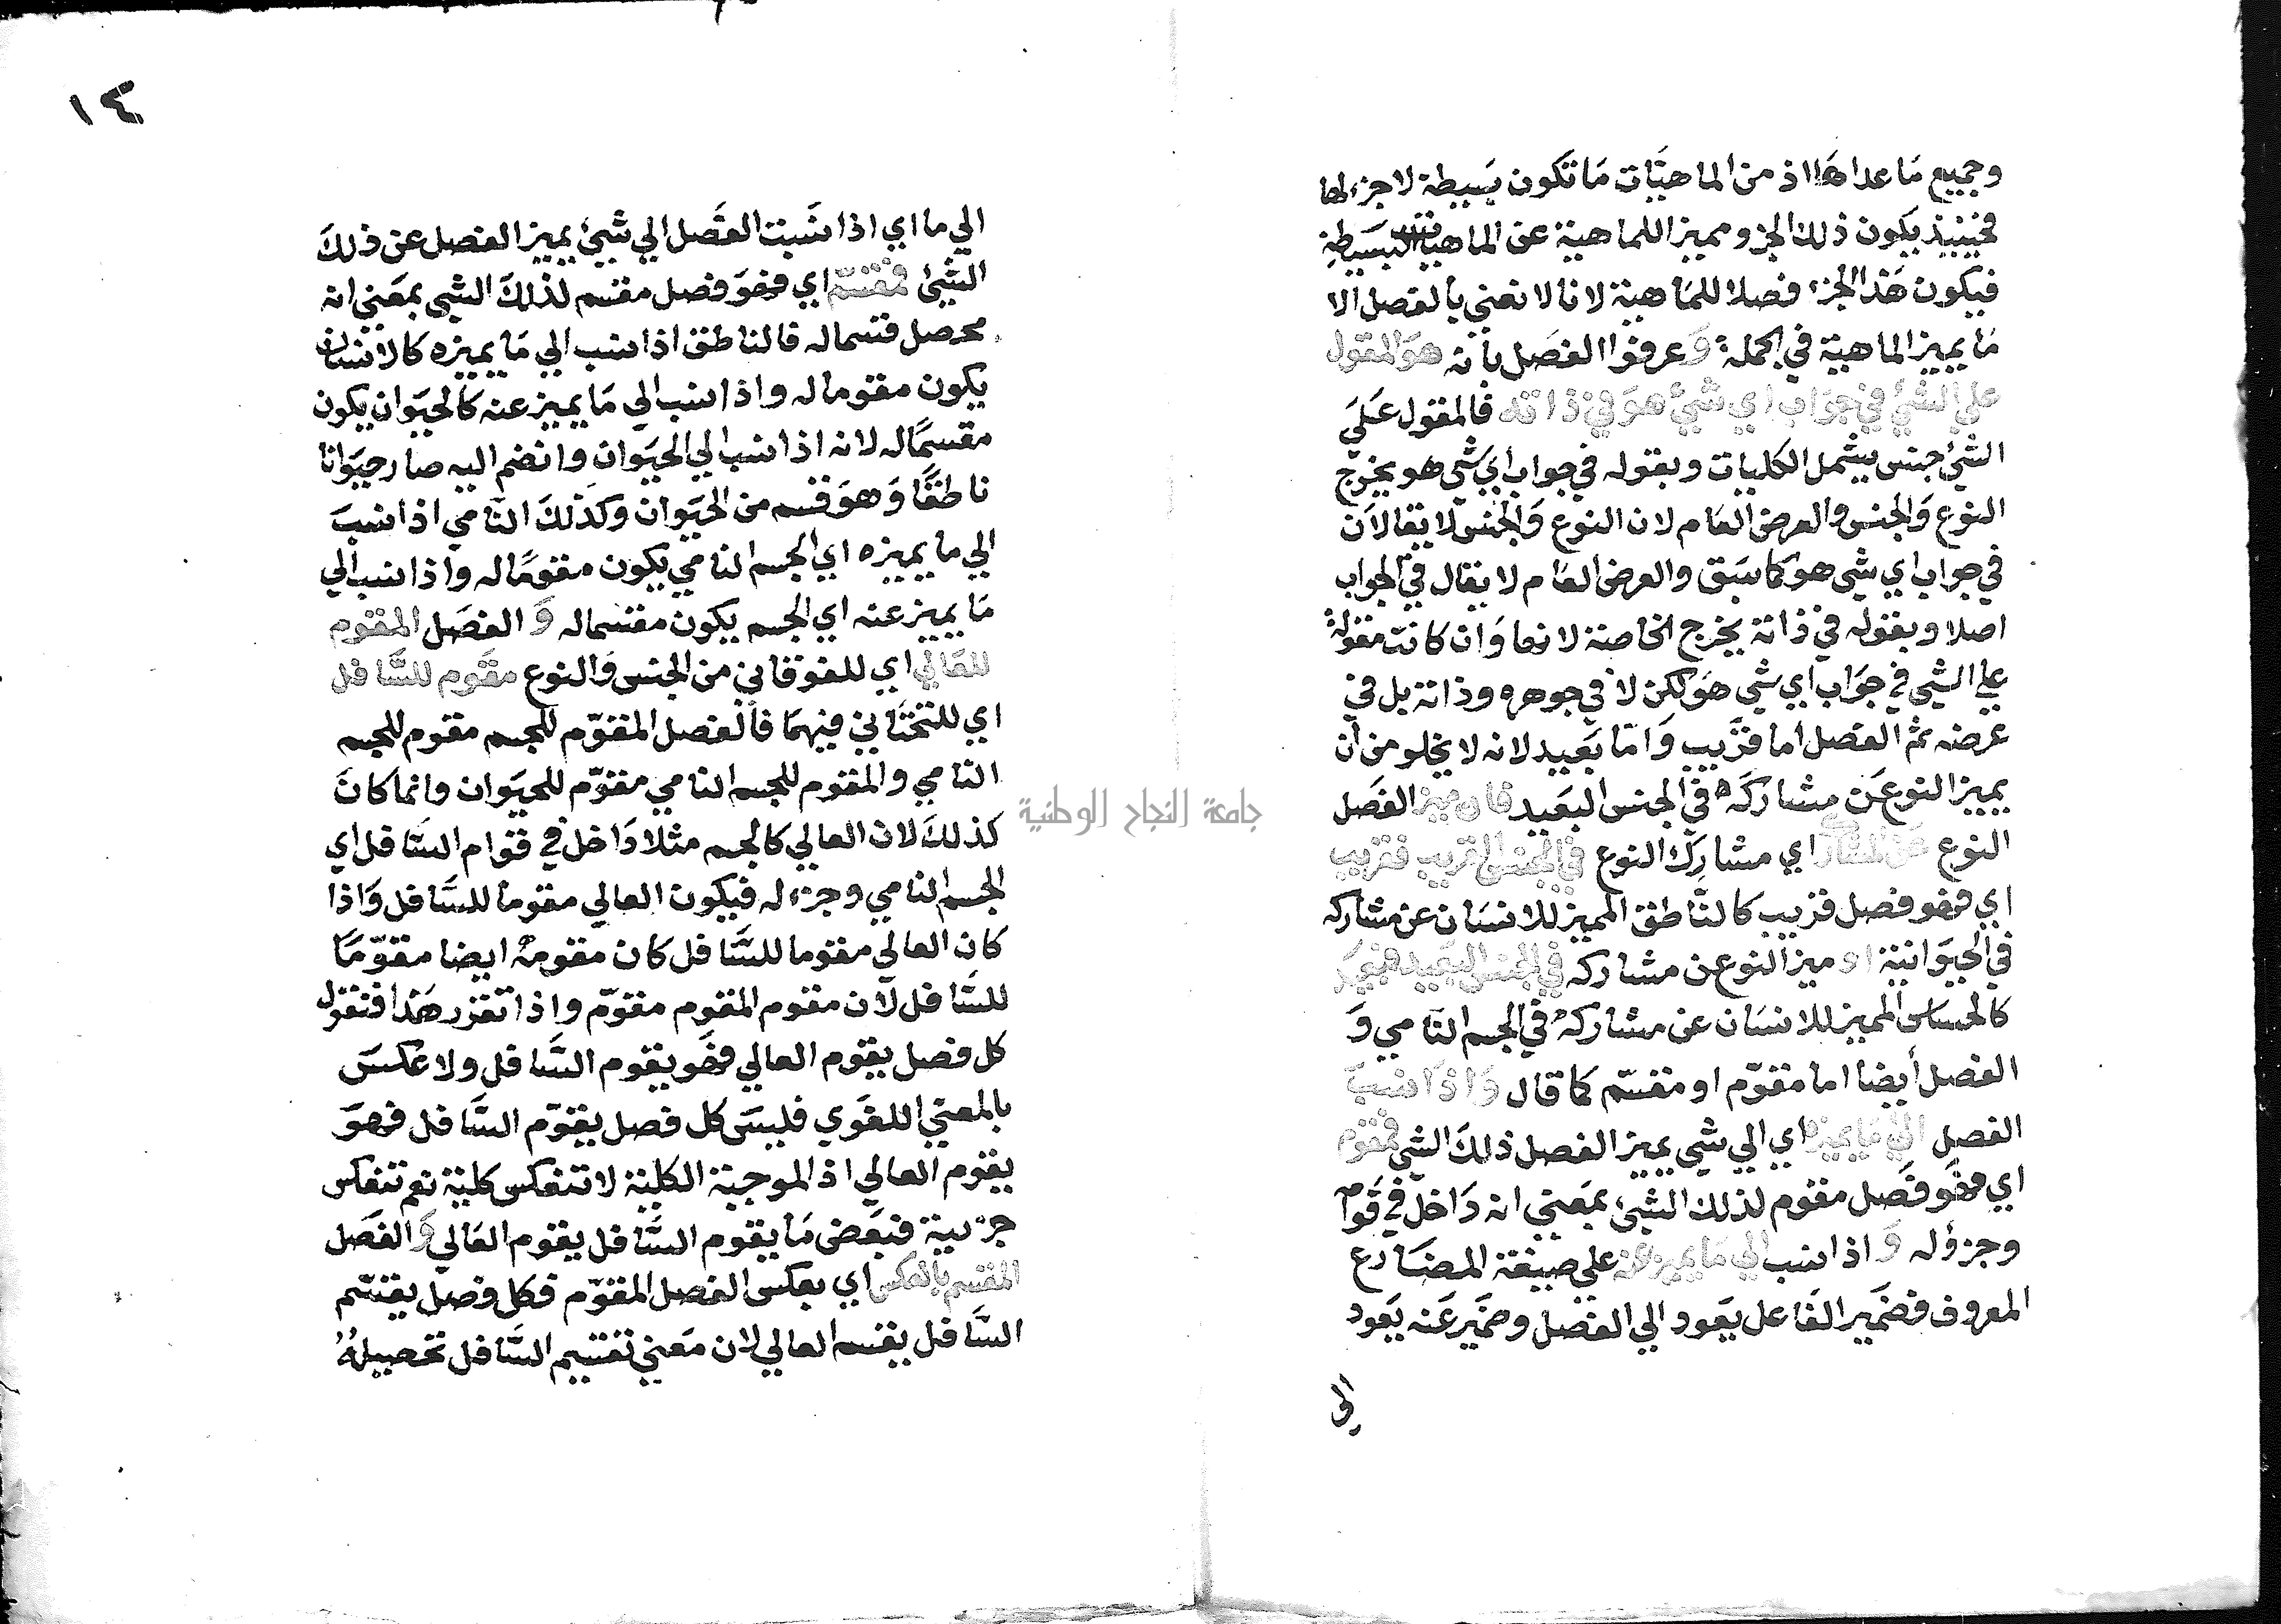 وجميع مَا عداهَا اذ من الماهيَّات مَا تكون بَسيطة لا جزء لها
فحينئيذ يكون ذلك الجزو مميزا للماهية عن الماهيات البسَيطةِ
فيكون هَذا الجزء فصلا للمَاهية لانا لا نعني بالفصل الا
مَا يميز الماهية في الجملة وَعرفوا الفصَل بأنه هوَ المقول
علي الشيُ في جوَاب اي شيُ هوَ في ذاته فالمقول عَلَي
الشيُ جنس يشمل الكليات وبقوله في جواب اي شي هو يخرج
النوع وَالجنس والعرض العام لان النوع وَالجنس لا يقالان
في جواب اي شي هو كما سَبق والعرض العَام لا يقال في الجواب
اصلا وبقوله في ذاته يخرج الخاصة لانها وَان كانت مقولة
علي الشي في جوَاب اي شي هَو لكن لا في جوهره وذاته بل في
عرضه ثم الفصل اما قرَيب وَاما بَعيد لانه لا يخلو من ان
يميز النوع عَن مشاركه في الجنس البَعيد فان ميز الفصَل
النوع عَن المشارك اي مشارك النوع في الجنس القريب فقريب
اي فهو فصل قريب كالنَّاطق المميز للانسَان عن مشاركه
في الحيَوانية او ميز النوع عن مشاركه في الجنس البَعيد فبعيد
كالحساس المميز للانسَان عن مشاركه في الجسم النَّامي وَ
الفصل أيضا اما مقوّم او مقسّم كما قال وَاذا نسبَ
الفصل الي مَا يميزه اي الي شي يميز الفصل ذلكَ الشي فمقوم
اي فهَو فَصل مقوم لذلك الشيُ بمَعني انه دَاخل في قوَامه
وجزؤله وَاذا نسب الي مَا يميز عنه علي صيغة المضَارع
المعروف فضَمير الفَاعل يعَود الي الفصل وضمَير عَنه يَعود
الي
١٤
الي ما اي اذا نسَبت الفصَل الي شَيُ يميز الفصل عن ذلكَ
الشيُ فمقسّم اي فهوَ فصل مقسم لذلكَ الشي بمعَني انه
محصل قسما له فالناطق اذا نسب الي مَا يميزه كالانسَان
يكون مقوما له واذا نسب الي مَا يميز عنه كالحيَوان يكون
مقسمًا له لانه اذا نسب الي الحيَوان وانضم اليه صار حيَوانا
ناطقًا وَهوَ قسم من الحيَوان وكذلكَ النَّامي اذا نسبَ
الي ما يميزه اي الجسم النامي يكون مقومًا له واذا نسب الي
مَا يميز عنه اي الجسم يكون مقسما له وَ الفصَل المقوم
للعَالي اي للفوقاني من الجنس وَالنوع مقَوم للسَّافل
اي للتختَاني فيهمَا فالفصل المقوّم للجسم مقوم للجسم
النامي والمقوم للجسم النامي مقوّم للحيَوان وانما كانَ
كذلكَ لان العالي كالجسم مثلا دَاخل في قوام السَّافل اي
الجسم النامي وجزءله فيكون العالي مقوما للسَّافل وَاذا
كان العالي مقوما للسَّافل كان مقومهُ ايضا مقوّمًا
للسَّافل لان مقوم المقوم مقوّم واذا تقرر هَذا فنقول
كل فصل يقوم العالي فهَو يقوم السَّافل ولا عكسَ
بالمعني اللغَوي فليسَ كل فصل يقوّم السَّافل فهوَ
يقوم العالي اذ الموجبة الكلية لا تنعكس كلية نعم تنعكس
جزئية فبَعض مَا يقوم السَّافل يقوم العَالي وَالفصَل
المقسم بالعكس اي بعكس الفصل المقوّم فكل فصل يقسّم
السَّافل يقسم العالي لان معَني تقسيم السَّافل تحصيلهُ
جامعة النجاح الوطنية